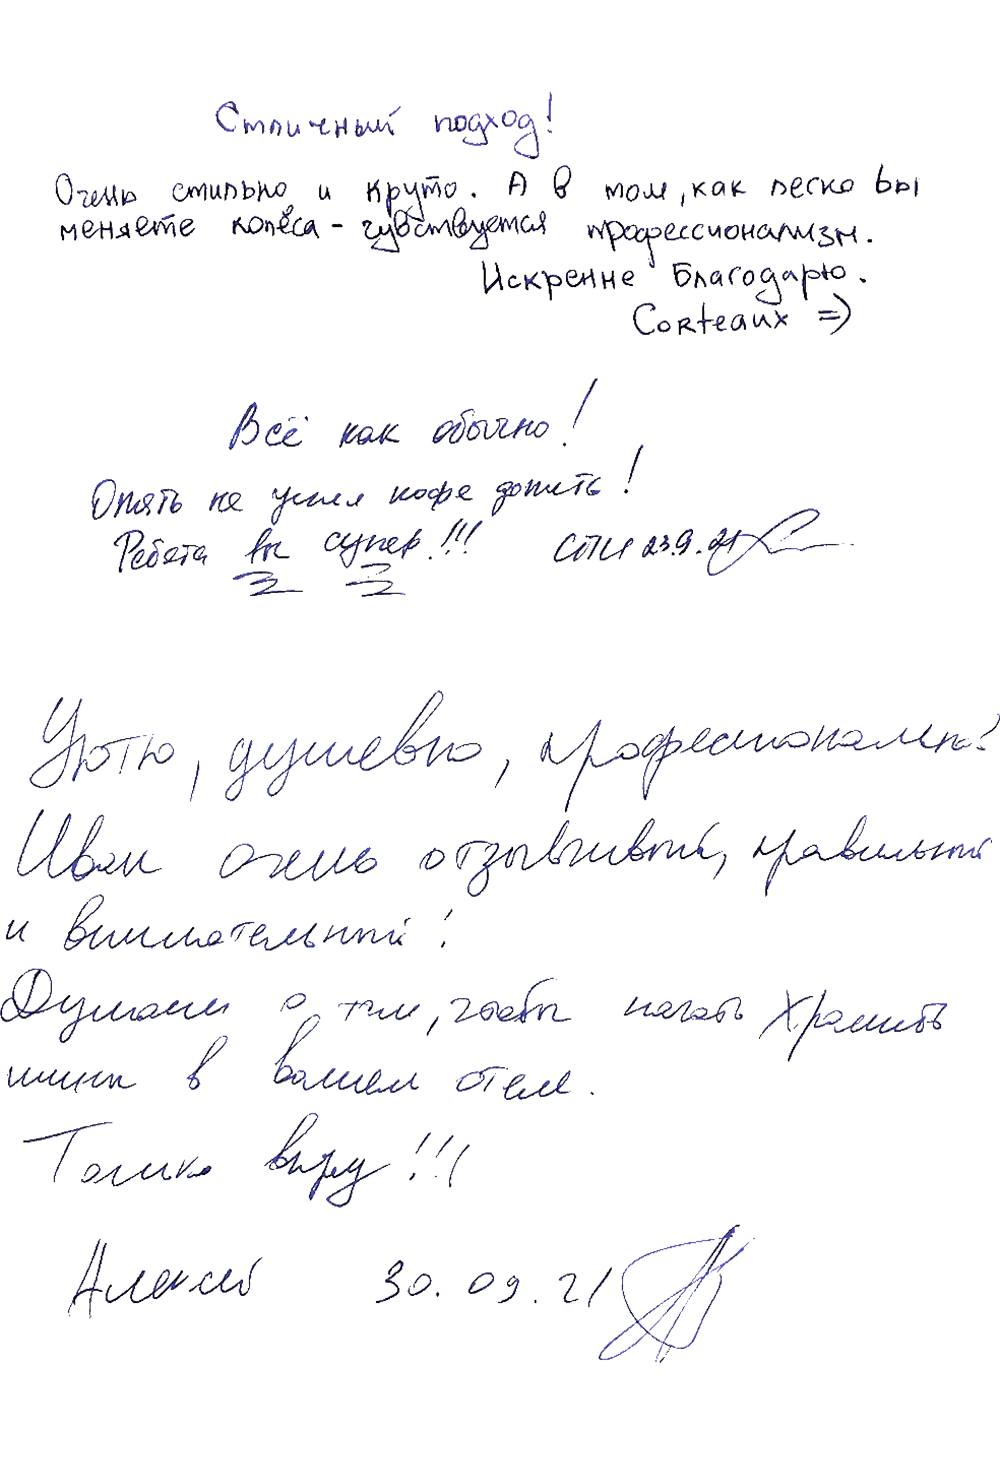 Отличный подход!
Очень стильно и круто. А в том, как легко вы
меняете колёса - чувствуется профессионализм.
Искренне Благодарю.
Corteaux =)
Всё как обычно!
Опять не успел кофе допить!
Ребята вы супер!!! 23.9.21
Уютно, душевно, профессионально!
Иван очень отзывчивый, правильный
и внимательный!
Думаем о том, чтобы начать хранить
шины в вашем отеле.
Только вверх!!!
Алексей 30.09.21